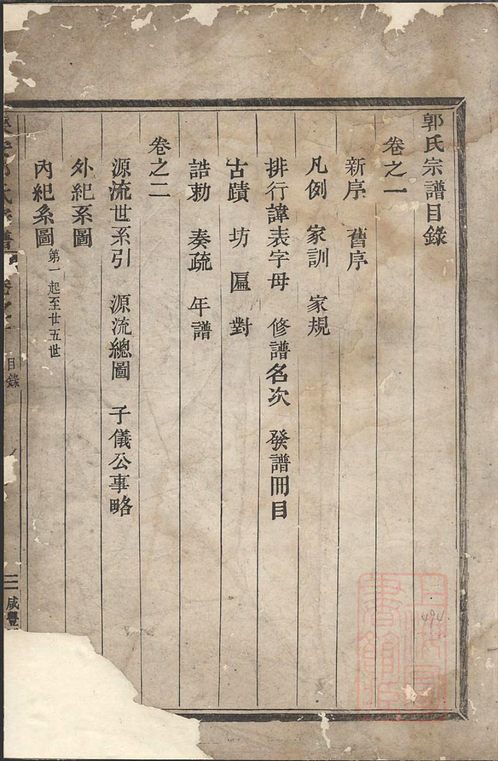 郭氏宗譜目錄
卷之一
新序 舊序
凡例 家訓 家規
排行諱表字母 修譜名次 發譜冊目
古蹟 坊 匾 對
誥勅 奏疏 年譜
卷之二
源流世系引 源流總圖 子儀公事略
外紀系圖
內紀系圖 第一起至廿五世
目錄
咸豐
494